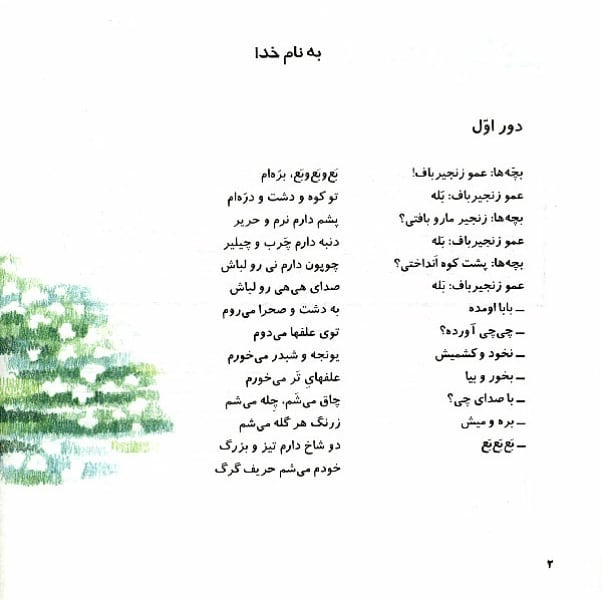 به نام خدا
دور اوّل
بچّه‌ها: عمو زنجیرباف!
عمو زنجیرباف: بَله
بچه‌ها: زنجیر مارو بافتی؟
عمو زنجیرباف: بَله
بچه‌ها: پشت کوه اَنداختی؟
عمو زنجیرباف: بَله
ــ بابا اومده
ــ چی‌چی آورده؟
ــ نخود و کشمیش
ــ بخور و بیا
ــ با صدای چی؟
ــ بره و میش
ــ بَع‌بَع‌بَع
بَع‌وبَع‌وبَع، برّه‌ام
تو کوه و دشت و درّه‌ام
پشم دارم نرم و حریر
دنبه دارم چَرب و چیلیر
چوپون دارم نی رو لباش
صدای هی‌هی رو لباش
به دشت و صحرا می‌روم
توی علفها می‌دوم
یونجه و شبدر می‌خورم
علفهایِ تَر می‌خورم
چاق می‌شَم، چِله می‌شم
زرنگ هر گله می‌شم
دو شاخ دارم تیز و بزرگ
خودم می‌شم حریف گرگ
۲